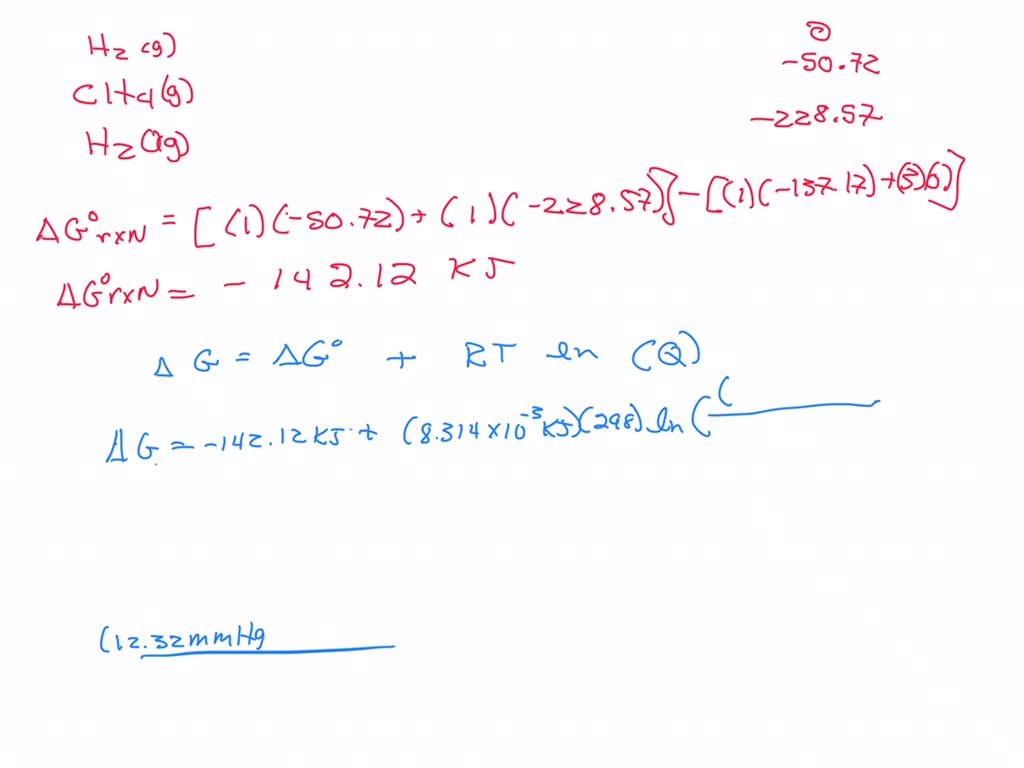 H₂ (g) 0
CH4 (g) -50.72
H₂O(g) -228.57
ΔG°rxN = [(1)(-50.72) + (1)(-228.57)] - [(1)(-137.17) + (3)(0)]
ΔG°rxN = - 142.12 KJ
Δ G = ΔG° + RT ln (Q)
ΔG = -142.12KJ + (8.314×10⁻³KJ)(298) ln ( (
(12.32mmHg